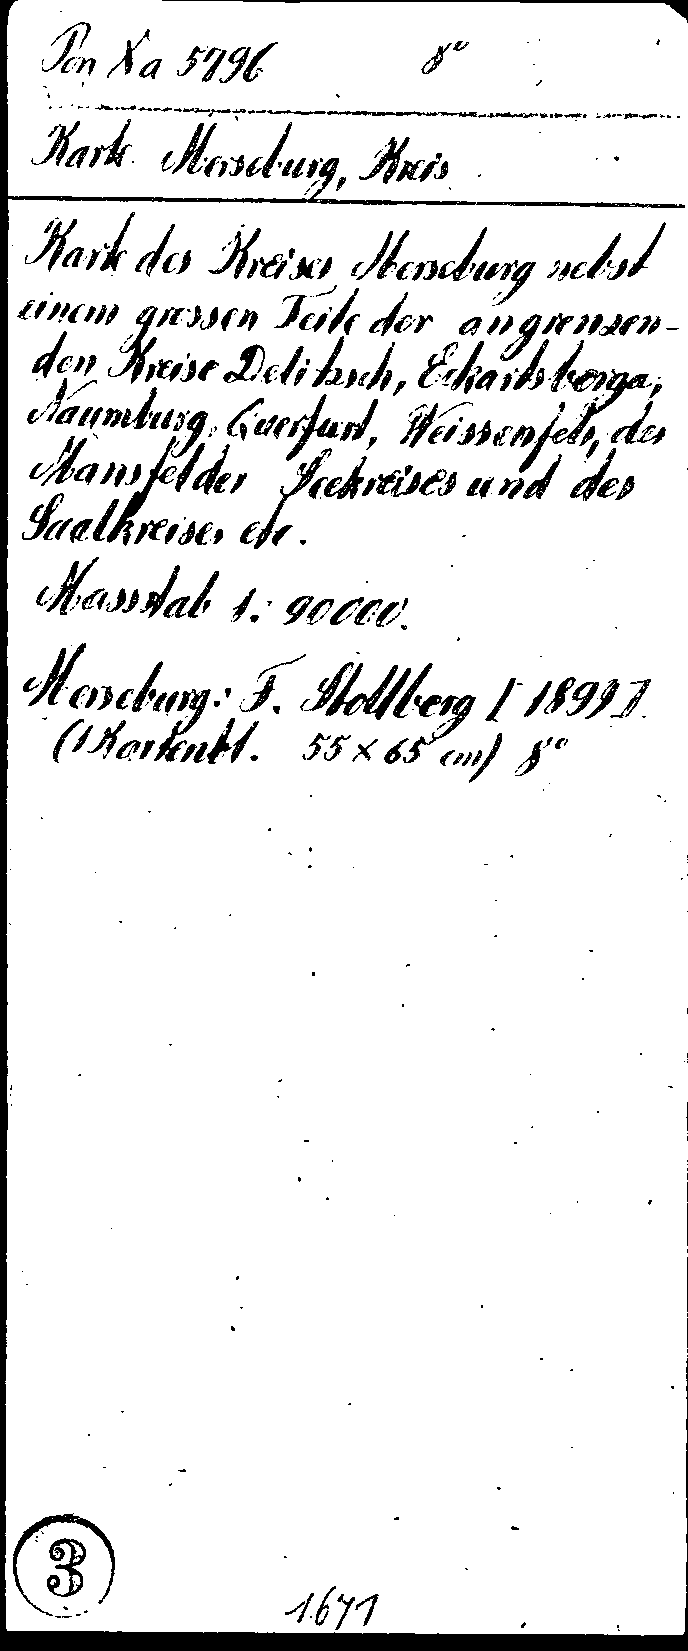 Pon Xa 5796 8°
Karte Merseburg, Kreis
Karte des Kreises Merseburg nebst
einem grossen Teile der angrenzen-
den Kreise Delitzsch, Eckartsberga,
Naumburg, Querfurt, Weissenfels, des
Mansfelder Seekreises und des
Saalkreises etc.
Massstab 1: 90000.
Merseburg: F. Stollberg [1899].
(1 Kartenbl. 55 x 65 cm) 8°
3
1671